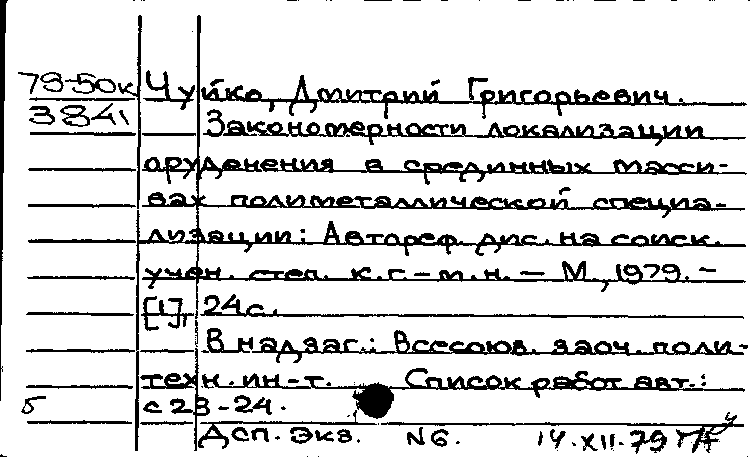 79-50к Чуйко, Дмитрий Григорьевич.
3841 Закономерности локализации
оруденения в срединных масси-
вах полиметаллической специа-
лизации: Автореф. дис. на соиск.
учен. степ. к.г.-м.н. - М., 1979. -
[1], 24 с.
В надзаг.: Всесоюз. заоч. поли-
техн. ин-т. Список работ авт.:
5 с 23-24.
Дсп. Экз. N6. 14.XII.79